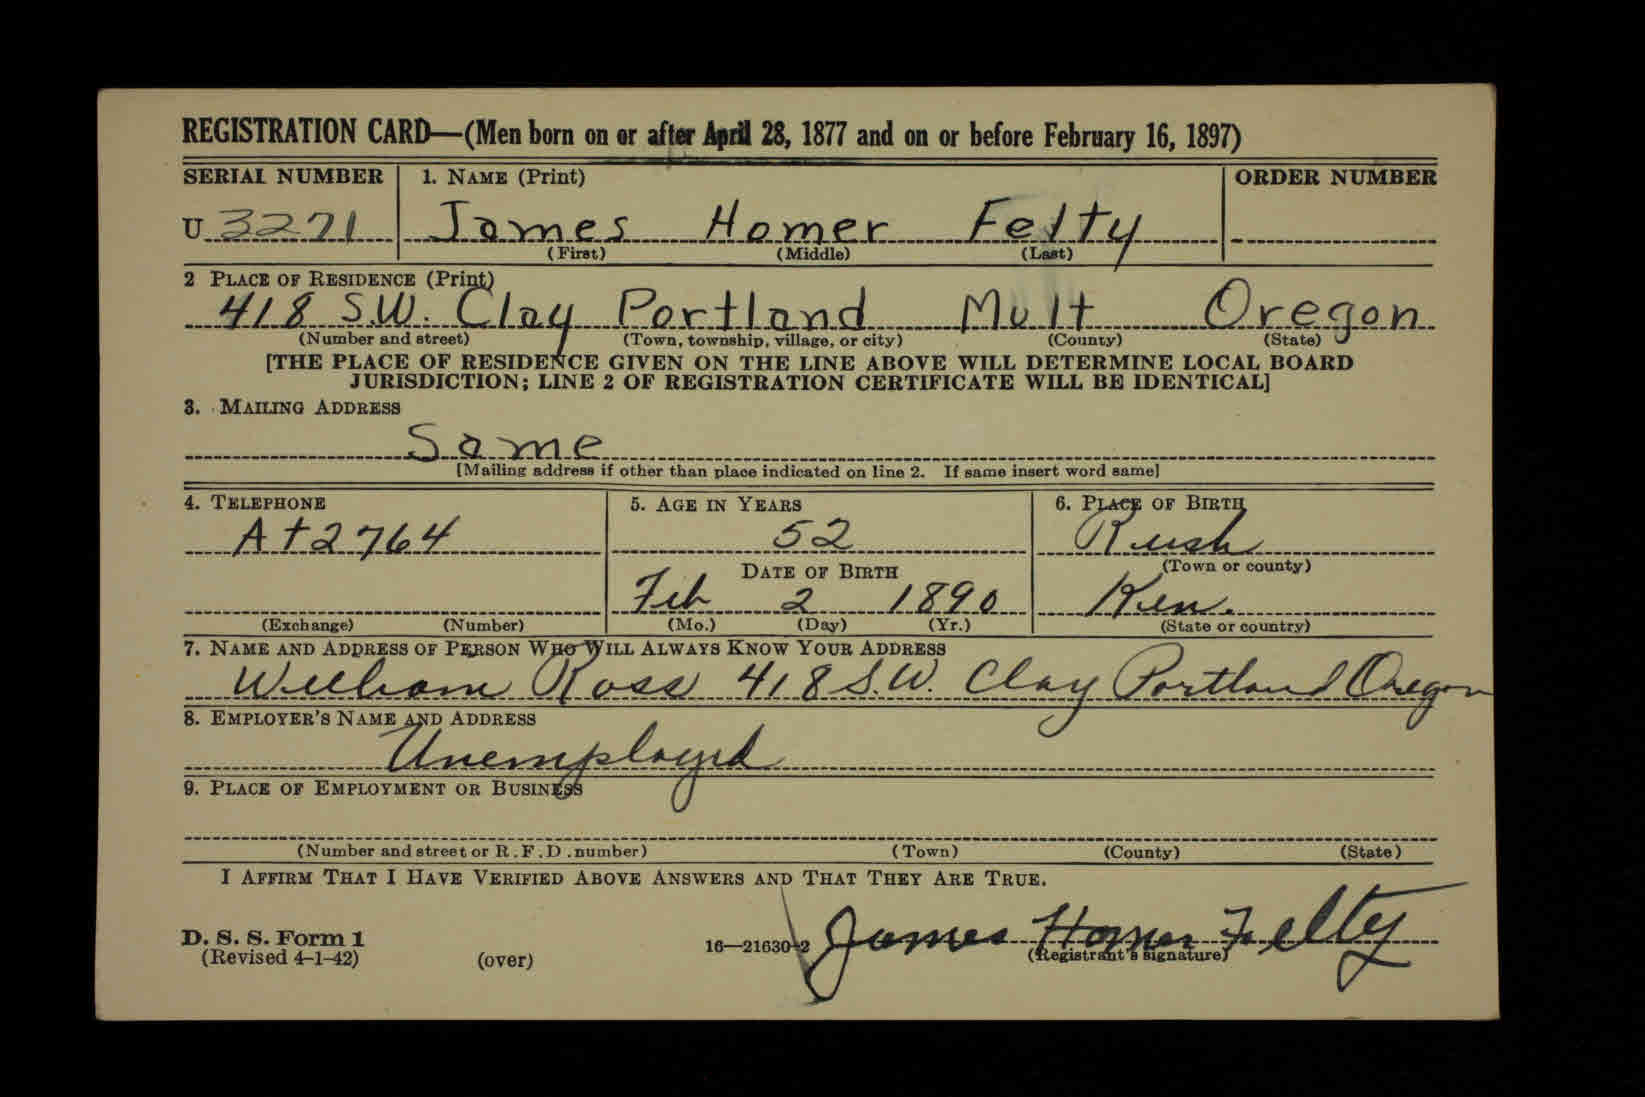 REGISTRATION CARD—(Men born on or after April 28, 1877 and on or before February 16, 1897)
SERIAL NUMBER 1. NAME (Print) ORDER NUMBER
U 3271 James Homer Felty
(First) (Middle) (Last)
2 PLACE OF RESIDENCE (Print)
418 S.W. Clay Portland Mult Oregon
(Number and street) (Town, township, village, or city) (County) (State)
[THE PLACE OF RESIDENCE GIVEN ON THE LINE ABOVE WILL DETERMINE LOCAL BOARD
JURISDICTION; LINE 2 OF REGISTRATION CERTIFICATE WILL BE IDENTICAL]
3. MAILING ADDRESS
Same
[Mailing address if other than place indicated on line 2. If same insert word same]
4. TELEPHONE 5. AGE IN YEARS 6. PLACE OF BIRTH
At 2764 52 Rush
DATE OF BIRTH (Town or county)
Feb 2 1890 Ken.
(Exchange) (Number) (Mo.) (Day) (Yr.) (State or country)
7. NAME AND ADDRESS OF PERSON WHO WILL ALWAYS KNOW YOUR ADDRESS
William Ross 418 S.W. Clay Portland Oregon
8. EMPLOYER'S NAME AND ADDRESS
Unemployed
9. PLACE OF EMPLOYMENT OR BUSINESS
(Number and street or R.F.D. number) (Town) (County) (State)
I AFFIRM THAT I HAVE VERIFIED ABOVE ANSWERS AND THAT THEY ARE TRUE.
D. S. S. Form 1
(Revised 4-1-42) (over) 16—21630-2 James Homer Felty
(Registrant's signature)